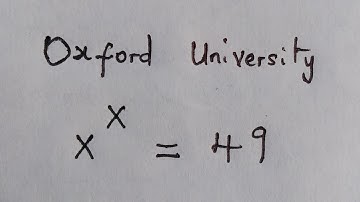 Oxford University
x^x = 49